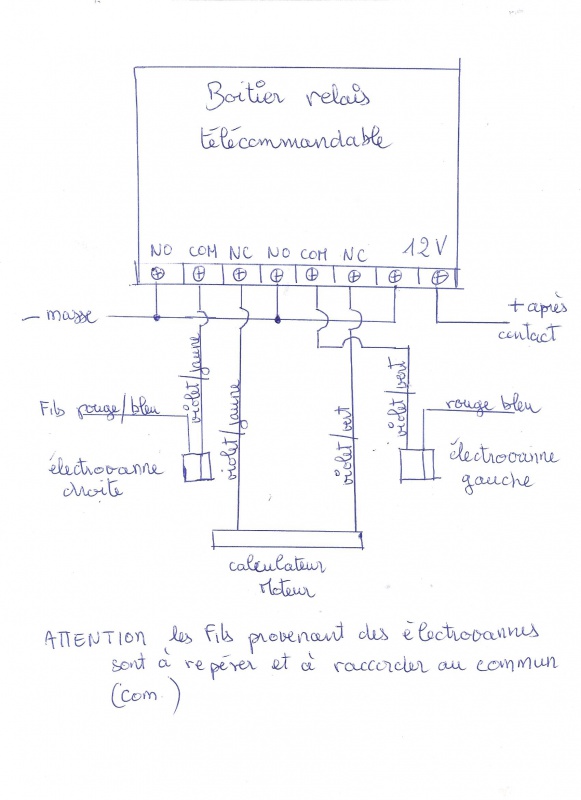 Boitier relais
télécommandable
NO COM NC NO COM NC 12V
- masse
+ après
contact
violet/jaune
violet/jaune
violet/vert
violet/vert
Fils rouge/bleu
rouge bleu
électrovanne
droite
électrovanne
gauche
calculateur
Moteur
ATTENTION les fils provenant des électrovannes
sont à repérer et à raccorder au commun
(com.)